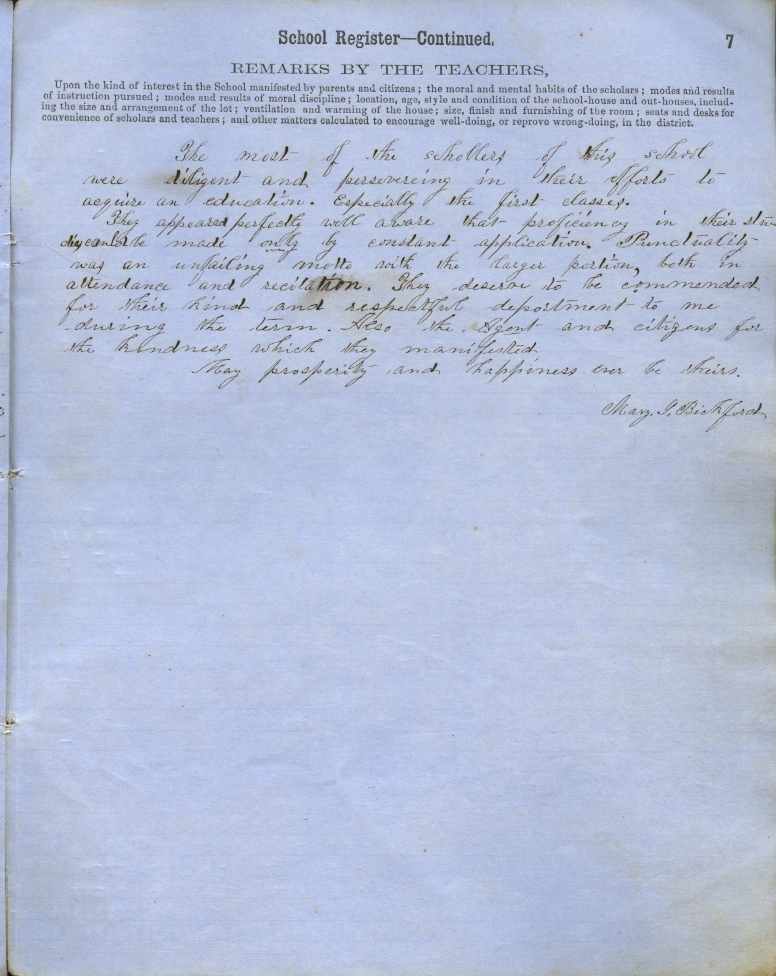 School Register—Continued.
7
REMARKS BY THE TEACHERS,
Upon the kind of interest in the School manifested by parents and citizens; the moral and mental habits of the scholars; modes and results
of instruction pursued; modes and results of moral discipline; location, age, style and condition of the school-house and out-houses, includ-
ing the size and arrangement of the lot; ventilation and warming of the house; size, finish and furnishing of the room; seats and desks for
convenience of scholars and teachers; and other matters calculated to encourage well-doing, or reprove wrong-doing, in the district.
The most of the schollers of this school
were diligent and persevereing in their efforts to
acquire an education. Especially the first classes.
They appeared perfectly well aware that proficiency in their stu
dies can be made only by constant application. Punctuality
was an unfailing motto with the larger portion, both in
attendance and recitation. They deserve to be commended
for their kind and respectful deportment to me
during the term. Also the Agent and citizens for
the kindness which they manifested.
May prosperity and happiness ever be theirs.
Mary. J. Bickford